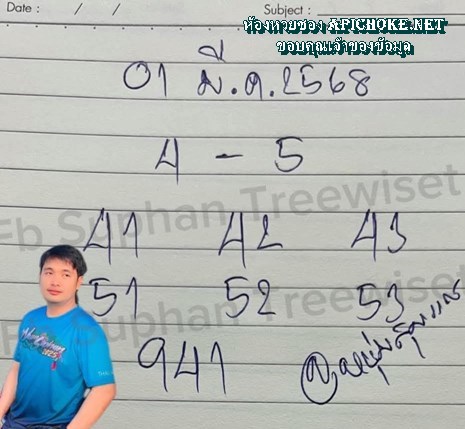 Date : / / Subject :
ห้องหวยซอง APICHOKE.NET
ขอบคุณเจ้าของข้อมูล
01 มี.ค.2568
4 - 5
Fb Suphan Treewiset
41 42 43
51 52 53
Fb Suphan Treewiset
941